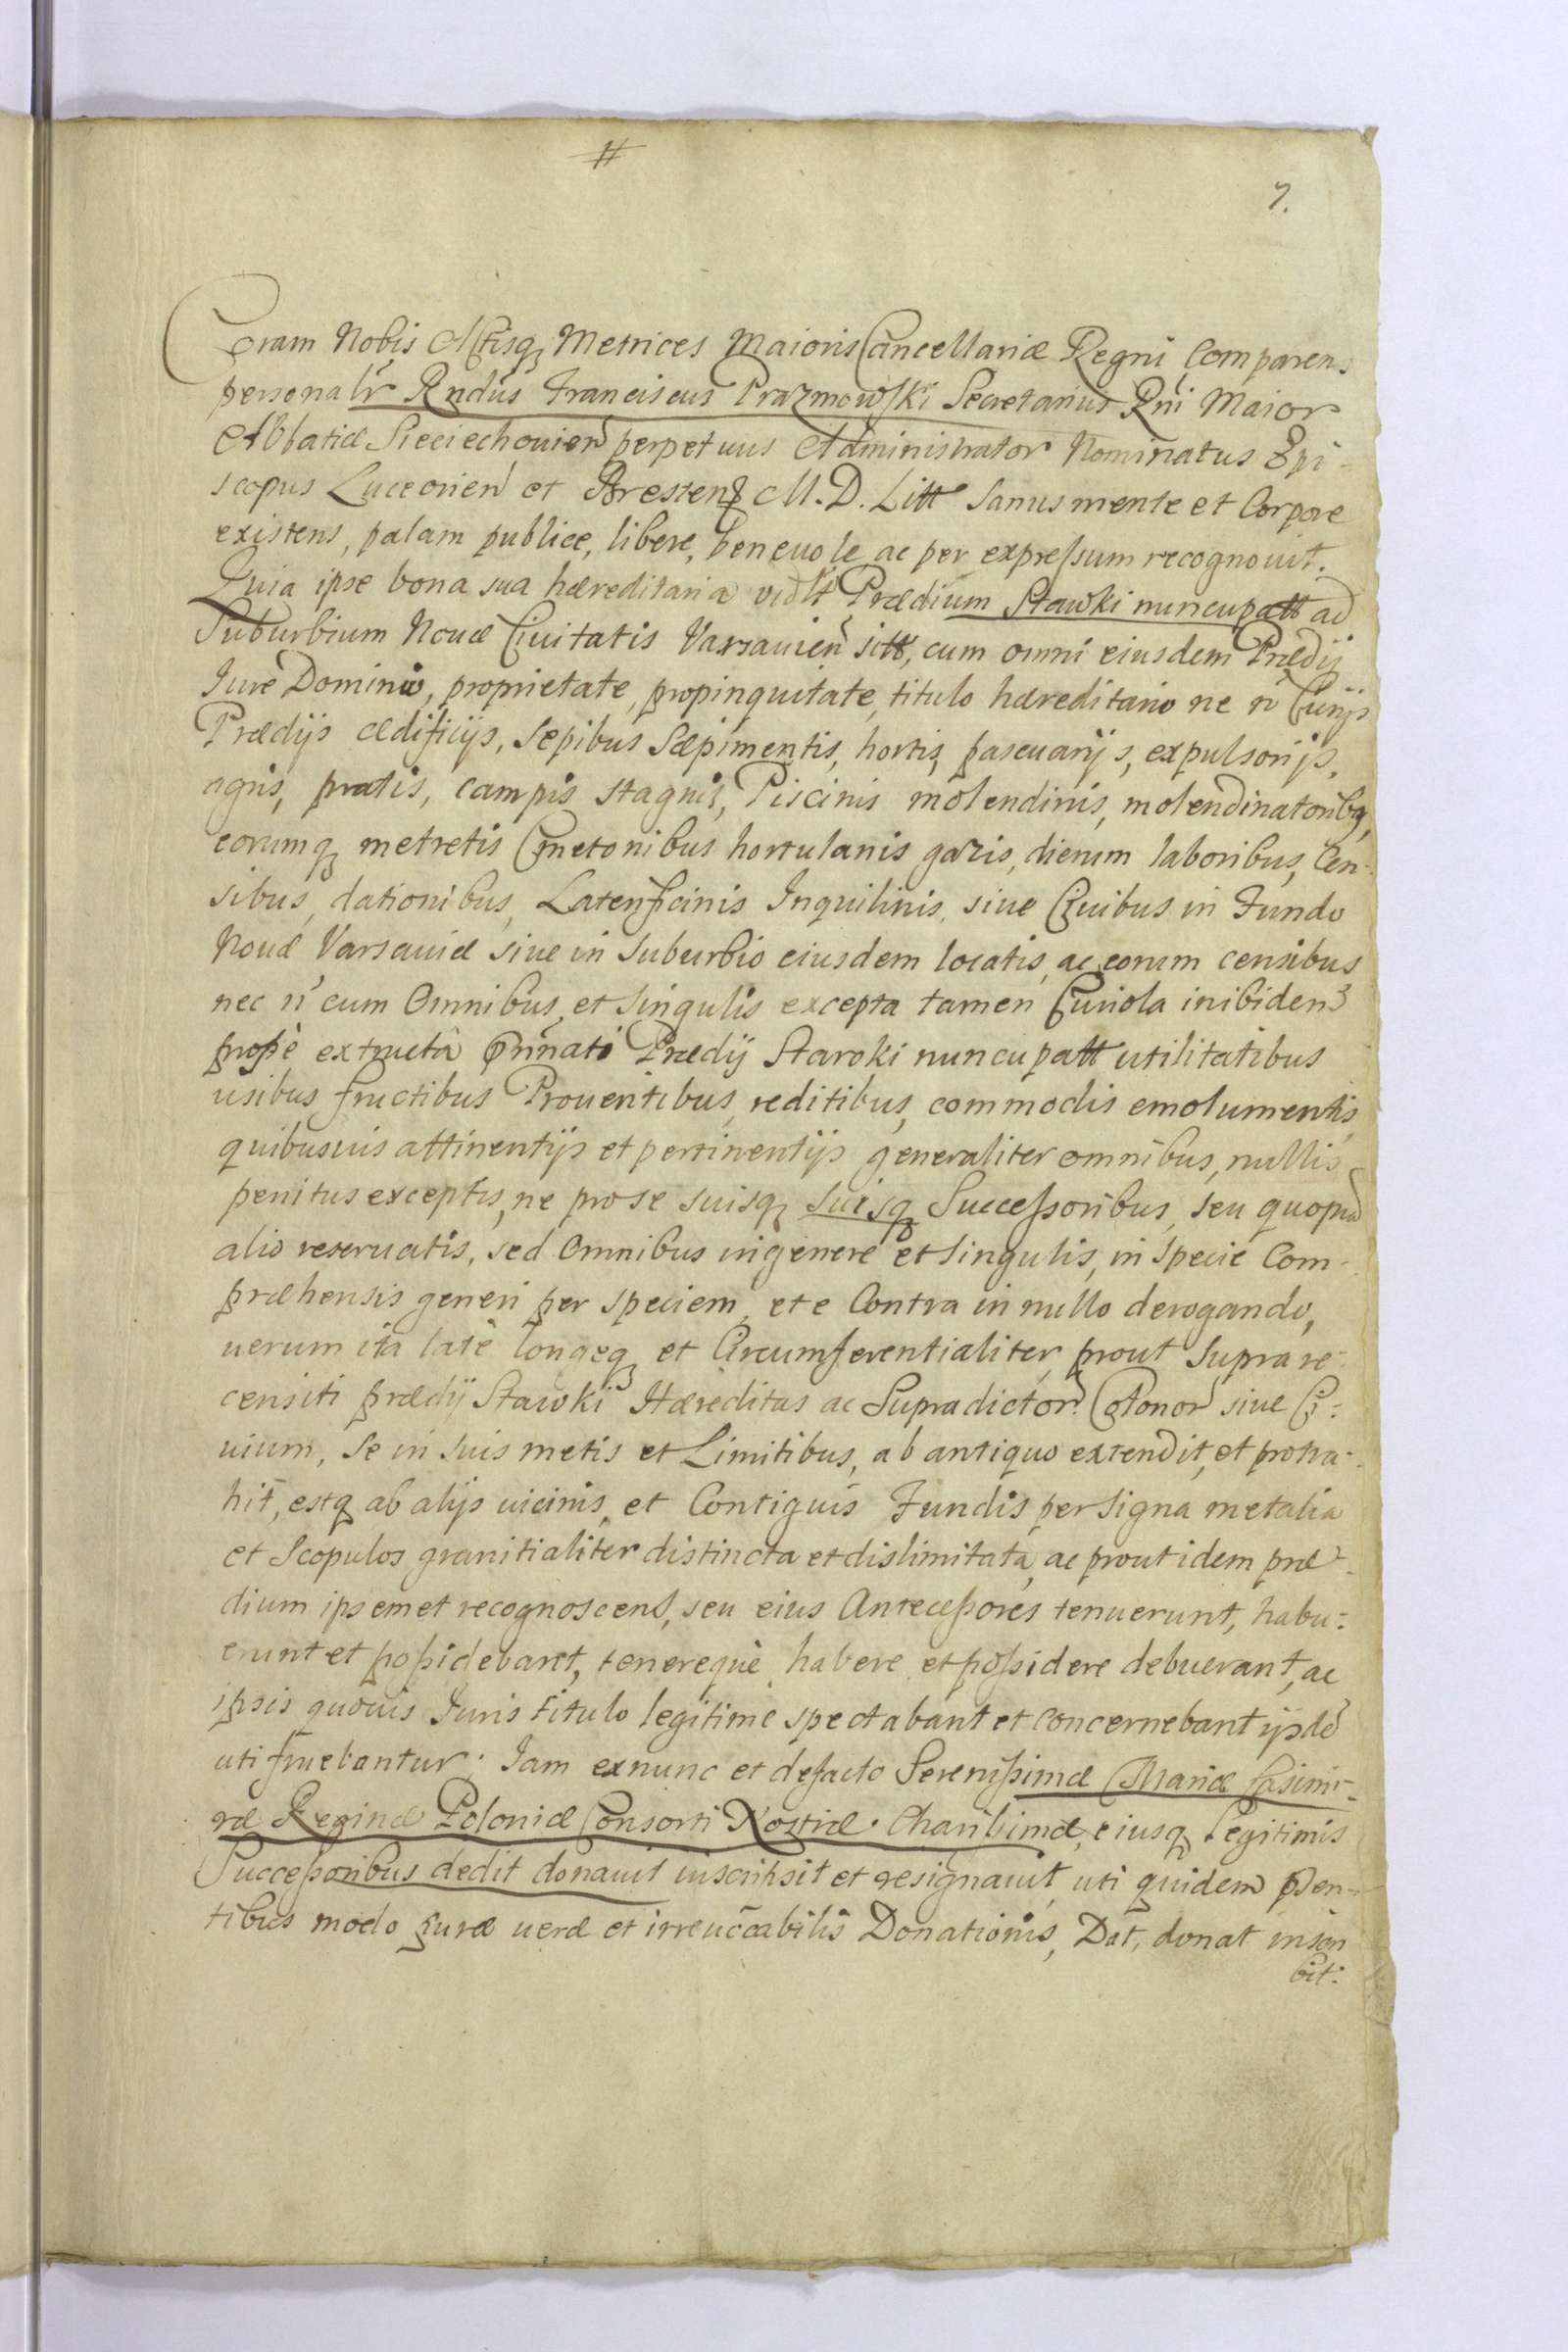 #
7.
Coram Nobis Actisq Metrices Maioris Cancellariæ Regni Comparens
personalr Rndus Franciscus Prazmowski Secretarius Rni Maior
Abbatiæ Sieciechouien perpetuus Administrator Nominatus Epi-
scopus Luceorien et Bresten M. D. Litt Sanus mente et Corpore
existens, palam publice, libere, beneuole ac per expressum recognouit.
Quia ipse bona sua hæreditaria vidlt Prædium Stawki nuncupatt ad
Suburbium Nouæ Ciuitatis Varsauien sitt, cum omni eiusdem Prædij
Iure Dominio, proprietate, propinquitate, titulo hæreditario ne n Curijs
Prædijs ædificijs, Sepibus Sæpimentis, hortis, pascuarijs, expulsorijs,
agris, pratis, campis stagnis, Piscinis molendinis, molendinatoribq,
eorumq metretis Cmetonibus hortulanis gazis, dierum laboribus, Cen-
sibus, dationibus, Laterificinis Inquilinis, siue Ciuibus in Fundo
Nouæ Varsauiæ siue in Suburbio eiusdem locatis, ac eorum censibus
nec n cum Omnibus, et Singulis excepta tamen Curiola inibidem
prope extructa prinati Prædij Staroki nuncupatt utilitatibus
usibus fructibus Prouentibus, reditibus, commodis emolumentis,
quibusuis attinentijs et pertinentijs generaliter omnibus, nullis
penitus exceptis, ne pro se suisq suisq Successoribus, seu quopia
alio reseruatis, sed Omnibus in genere et Singulis, in Specie Com-
præhensis generi per speciem, et e Contra in nullo derogando,
uerum ita late longeq et Circumferentialiter, prout Supra re-
censiti prædij Stawki Hæreditas ac Supradictor. Colonor siue Ci-
uium, Se in Suis metis et Limitibus, ab antiquo extendit, et protra-
hit, estq ab alijs uicinis, et Contiguis Fundis per Signa metalia
et Scopulos granitialiter distincta et dislimitata, ac prout idem præ-
dium ipsemet recognoscens, seu eius Antecessores tenuerunt, habu-
erunt et possidebant, tenereque, habere et possidere debuerant, ac
ipsis quouis Iuris titulo legitime spectabant et concernebant ijsde
uti fruebantur. Iam exnunc et defacto Serenissimæ Mariæ Casimi-
ræ Reginæ Poloniæ Consorti Nostræ Charissimæ, eiusq Legitimis
Successoribus dedit donauit inscripsit et resignauit, uti quidem pñen-
tibus modo puræ ueræ et irreuocabilis Donationis, Dat, donat inscri
bit.